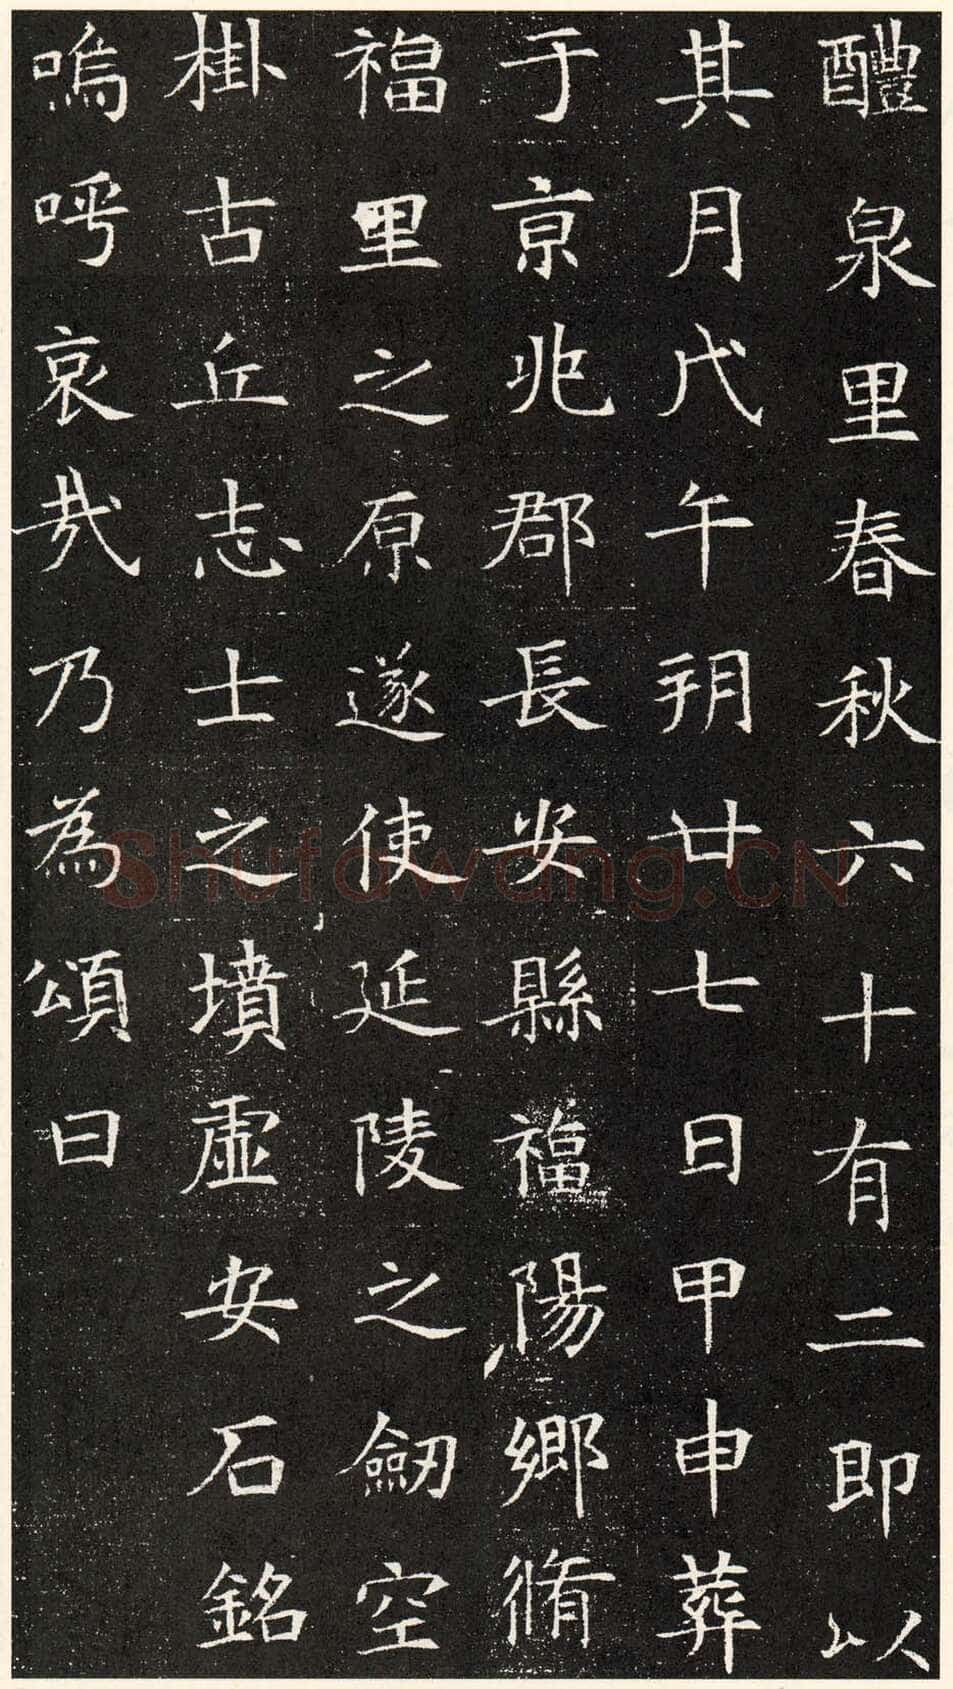 醴泉里春秋六十有二即以
其月戊午朔廿七日甲申葬
于京兆郡長安縣福陽鄉脩
福里之原遂使延陵之劒空
掛古丘志士之墳虛安石銘
嗚呼哀哉乃為頌曰
Shufawang.CN